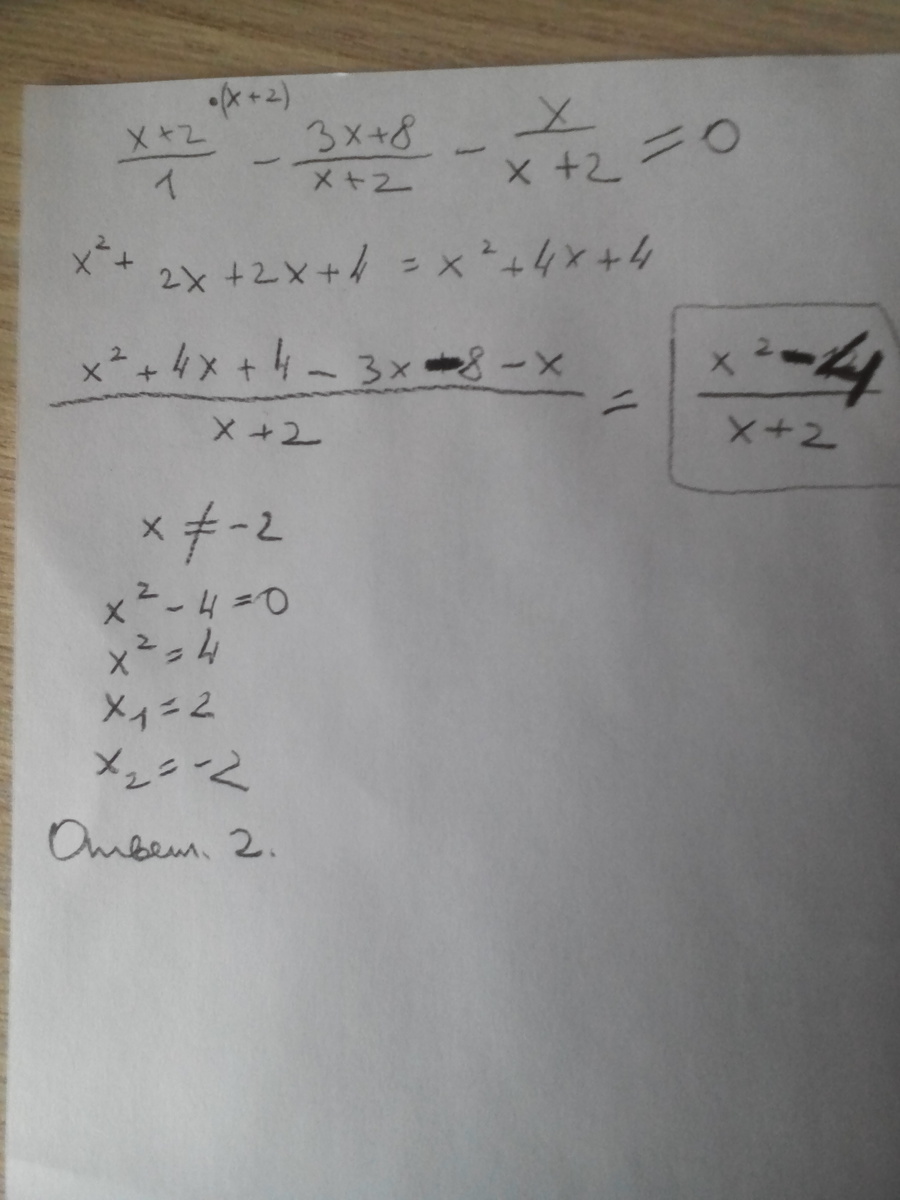 (x+2)/1 ·(x+2) - (3x+8)/(x+2) - x/(x+2) = 0
x² + 2x + 2x + 4 = x² + 4x + 4
(x² + 4x + 4 - 3x - 8 - x)/(x+2) = (x² - 4)/(x+2)
x ≠ -2
x² - 4 = 0
x² = 4
x₁ = 2
x₂ = -2
Ответ. 2.